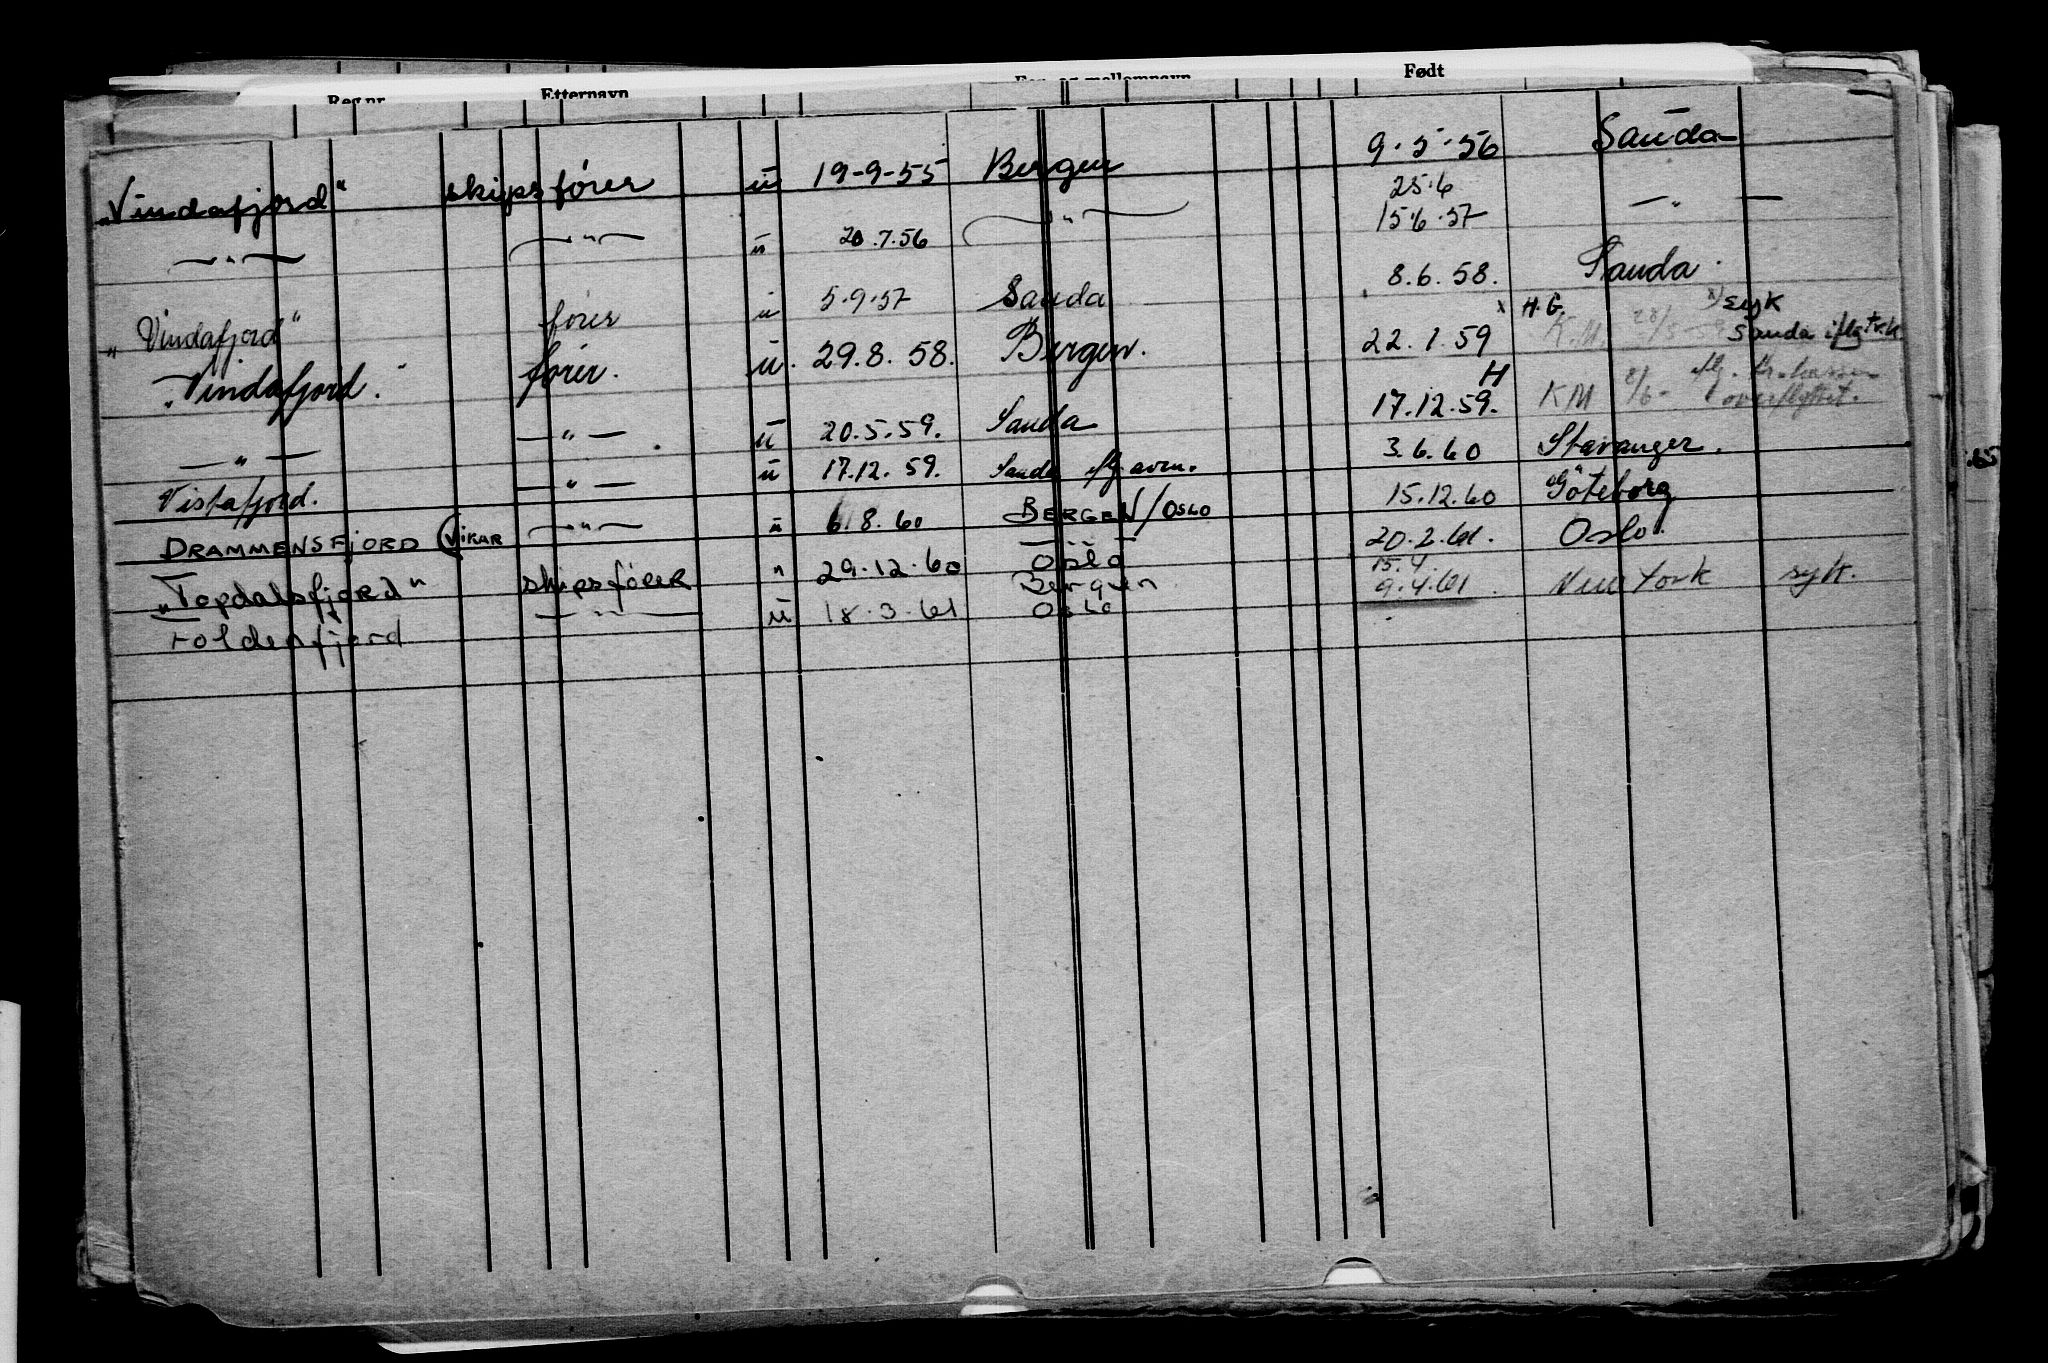 Reg.nr. Etternavn For- og mellomnavn Født
„Vindafjord" skipsfører ü 19-9-55 Bergen 9.5.56 Sauda
—"— —"— ü 20.7.56 —"— 25.6 15.6.57 —"—
„Vindafjord" fører ü 5.9.57 Sauda 8.6.58. Sauda.
„Vindafjord." fører. ü. 29.8.58. Bergen. 22.1.59 x H.G. K.M. 28/5-59 x) syk Sauda iflg
—"— —"—. ü 20.5.59. Sauda 17.12.59. H KM 2/6- overflyttet.
Vistafjord. —"— ü 17.12.59. Sauda iflg 3.6.60 Stavanger.
DRAMMENSFJORD (VIKAR —"— ü 6.8.60 BERGEN/OSLO 15.12.60 Göteborg
„Topdalsfjord" skipsfører " 29.12.60 Oslo 20.2.61. Oslo.
Foldenfjord —"— ü 18.3.61 Bergen Oslo 15.4. 9.4.61. New York syk.